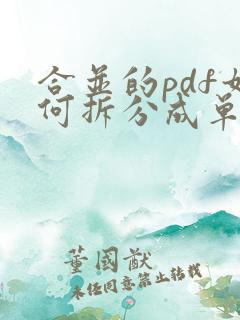 合并的pdf如
何拆分成单
董国猷
未经同意禁止转载